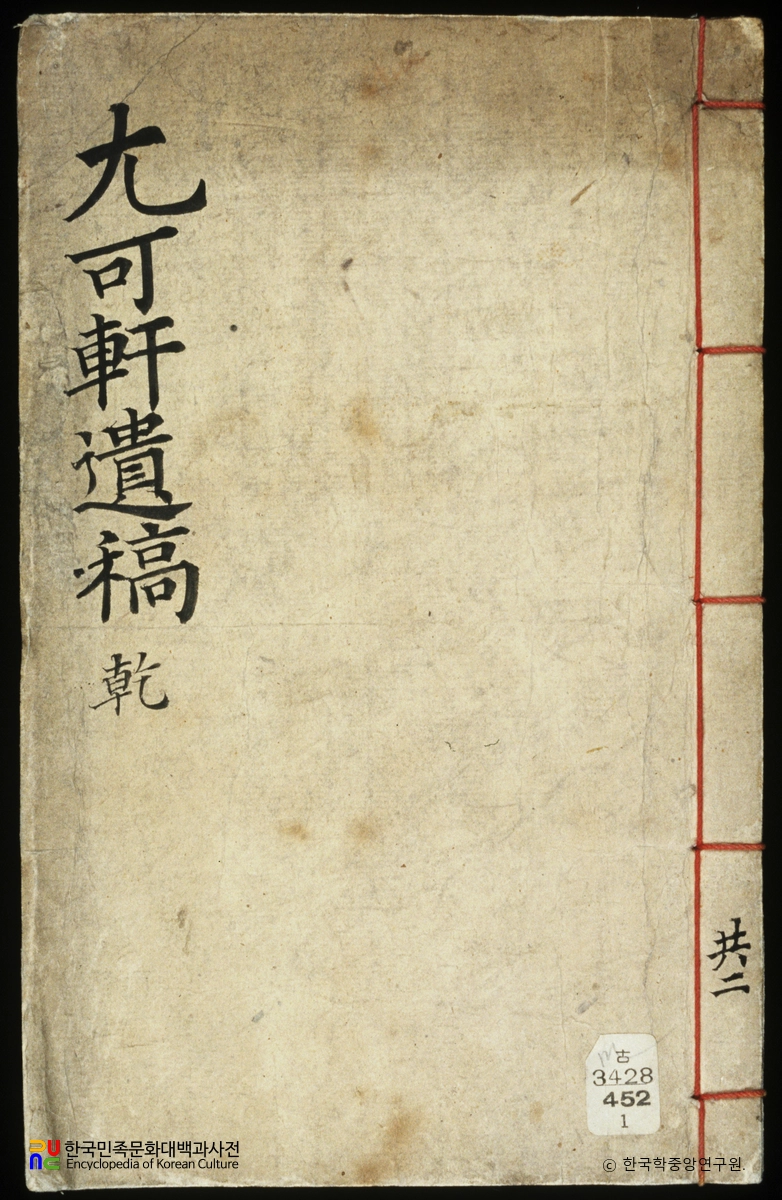 尢可軒遺稿 乾
共二
古
3428
452
1
한국민족문화대백과사전
Encyclopedia of Korean Culture
© 한국학중앙연구원.